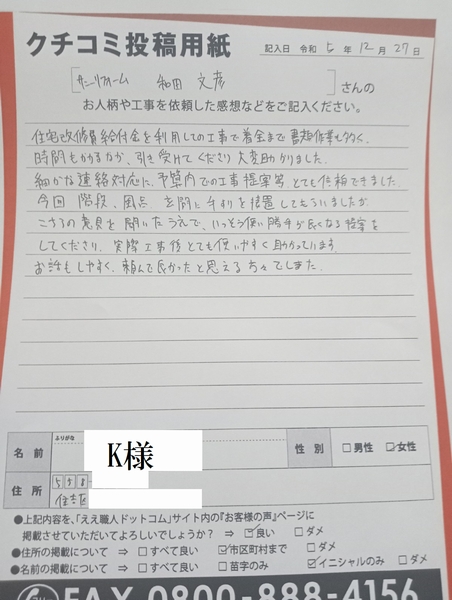 クチコミ投稿用紙
記入日 令和 5 年 12 月 27 日
[サンリフォーム 和田 文彦] さんの
お人柄や工事を依頼した感想などをご記入ください。
住宅改修費給付金を利用しての工事で着金まで書類作業も多く、
時間もかかるなか、引き受けてくださり大変助かりました。
細かな連絡対応に、予算内での工事提案等、とても信頼できました。
今回 階段、風呂、玄関に手すりを設置してもらいましたが、
こちらの意見を聞いたうえで、いっそう使い勝手が良くなる提案を
してくださり、実際工事後とても使いやすく助かっています。
お話もしやすく、頼んで良かったと思える方々でした。
ふりがな
名前 K様 性別 □男性 ☑女性
住所 558
住吉区
●上記内容を、「ええ職人ドットコム」サイト内の『お客様の声』ページに
掲載させていただいてよろしいでしょうか? ⇒ ☑良い □ダメ
●住所の掲載について ⇒ □すべて良い ☑市区町村まで □ダメ
●名前の掲載について ⇒ □すべて良い □苗字のみ ☑イニシャルのみ □ダメ
FAX 0800-888-4156